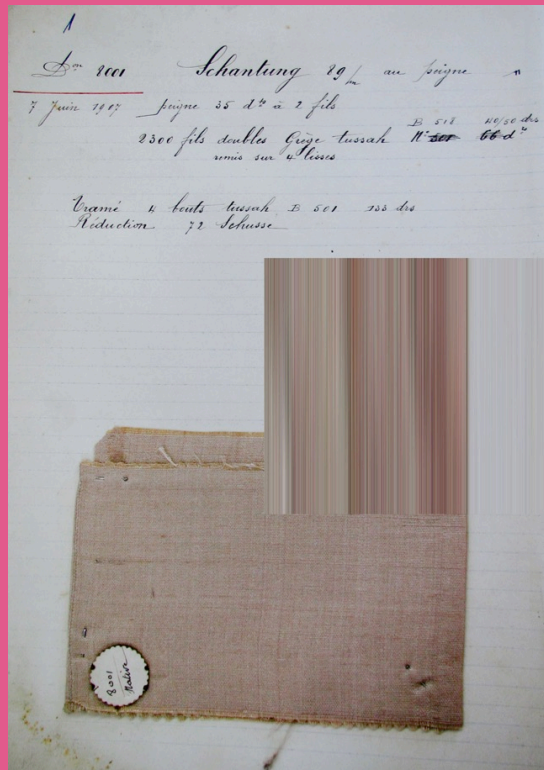 1
Don 8001 Schantung 89/m au peigne "
7 Juin 1907 peigne 35 dts à 2 fils
B 518 40/50 drs
2300 fils doubles Grège tussah N° 501 66 drs
remis sur 4 lisses
Tramé 4 bouts tussah B 501 133 drs
Réduction 72 Schusse
8001
Native